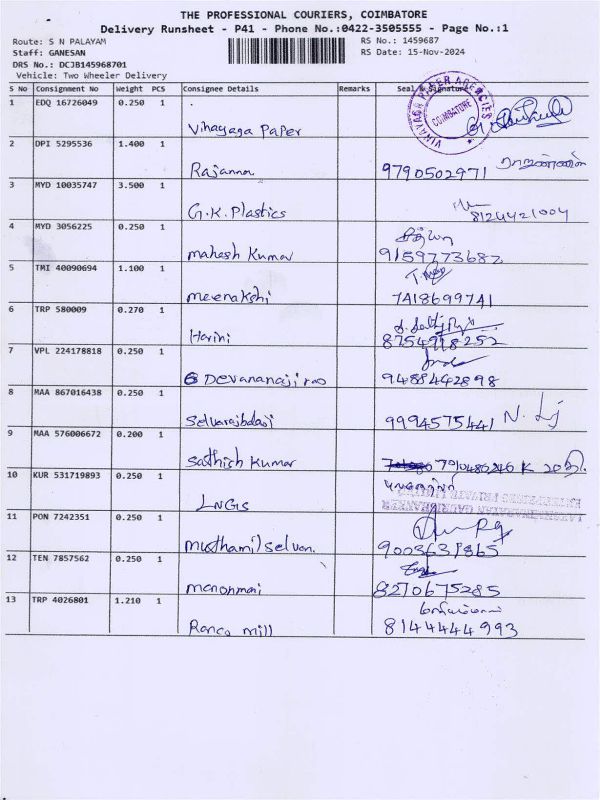 THE PROFESSIONAL COURIERS, COIMBATORE
Delivery Runsheet - P41 - Phone No.:0422-3505555 - Page No.:1
Route: S N PALAYAM RS No.: 1459687
Staff: GANESAN RS Date: 15-Nov-2024
DRS No.: DCJB145968701
Vehicle: Two Wheeler Delivery
S No Consignment No Weight PCS Consignee Details Remarks Seal & Signature
1 EDQ 16726049 0.250 1
Vinayaga Paper
VINAYAGA PAPER AGENCIES
COIMBATORE
2 DPI 5295536 1.400 1
Rajanna 9790502971
3 MYD 10035747 3.500 1
G.K. Plastics 8124421004
4 MYD 3056225 0.250 1
mahesh Kumar 9159773682
5 TMI 40090694 1.100 1
meenakshi 7418699741
6 TRP 580009 0.270 1
Harini 8754918252
7 VPL 224178818 0.250 1
Devananajirao 9488442898
8 MAA 867016438 0.250 1
Selvarajbalaji 9994575441
9 MAA 576006672 0.200 1
Sathish Kumar 7910486246 K
10 KUR 531719893 0.250 1
LNGS
11 PON 7242351 0.250 1
muthamilselvan.
12 TEN 7857562 0.250 1
manonmai 8270675285
13 TRP 4026801 1.210 1
Ranco mill 8144444993